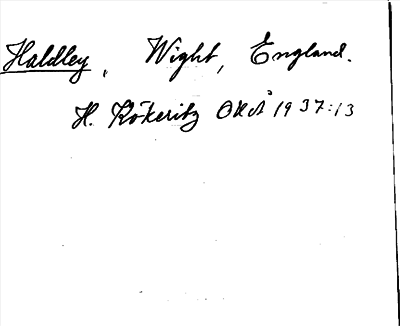 Haldley, Wight, England.
H. Kökeritz OUÅ 1937:13